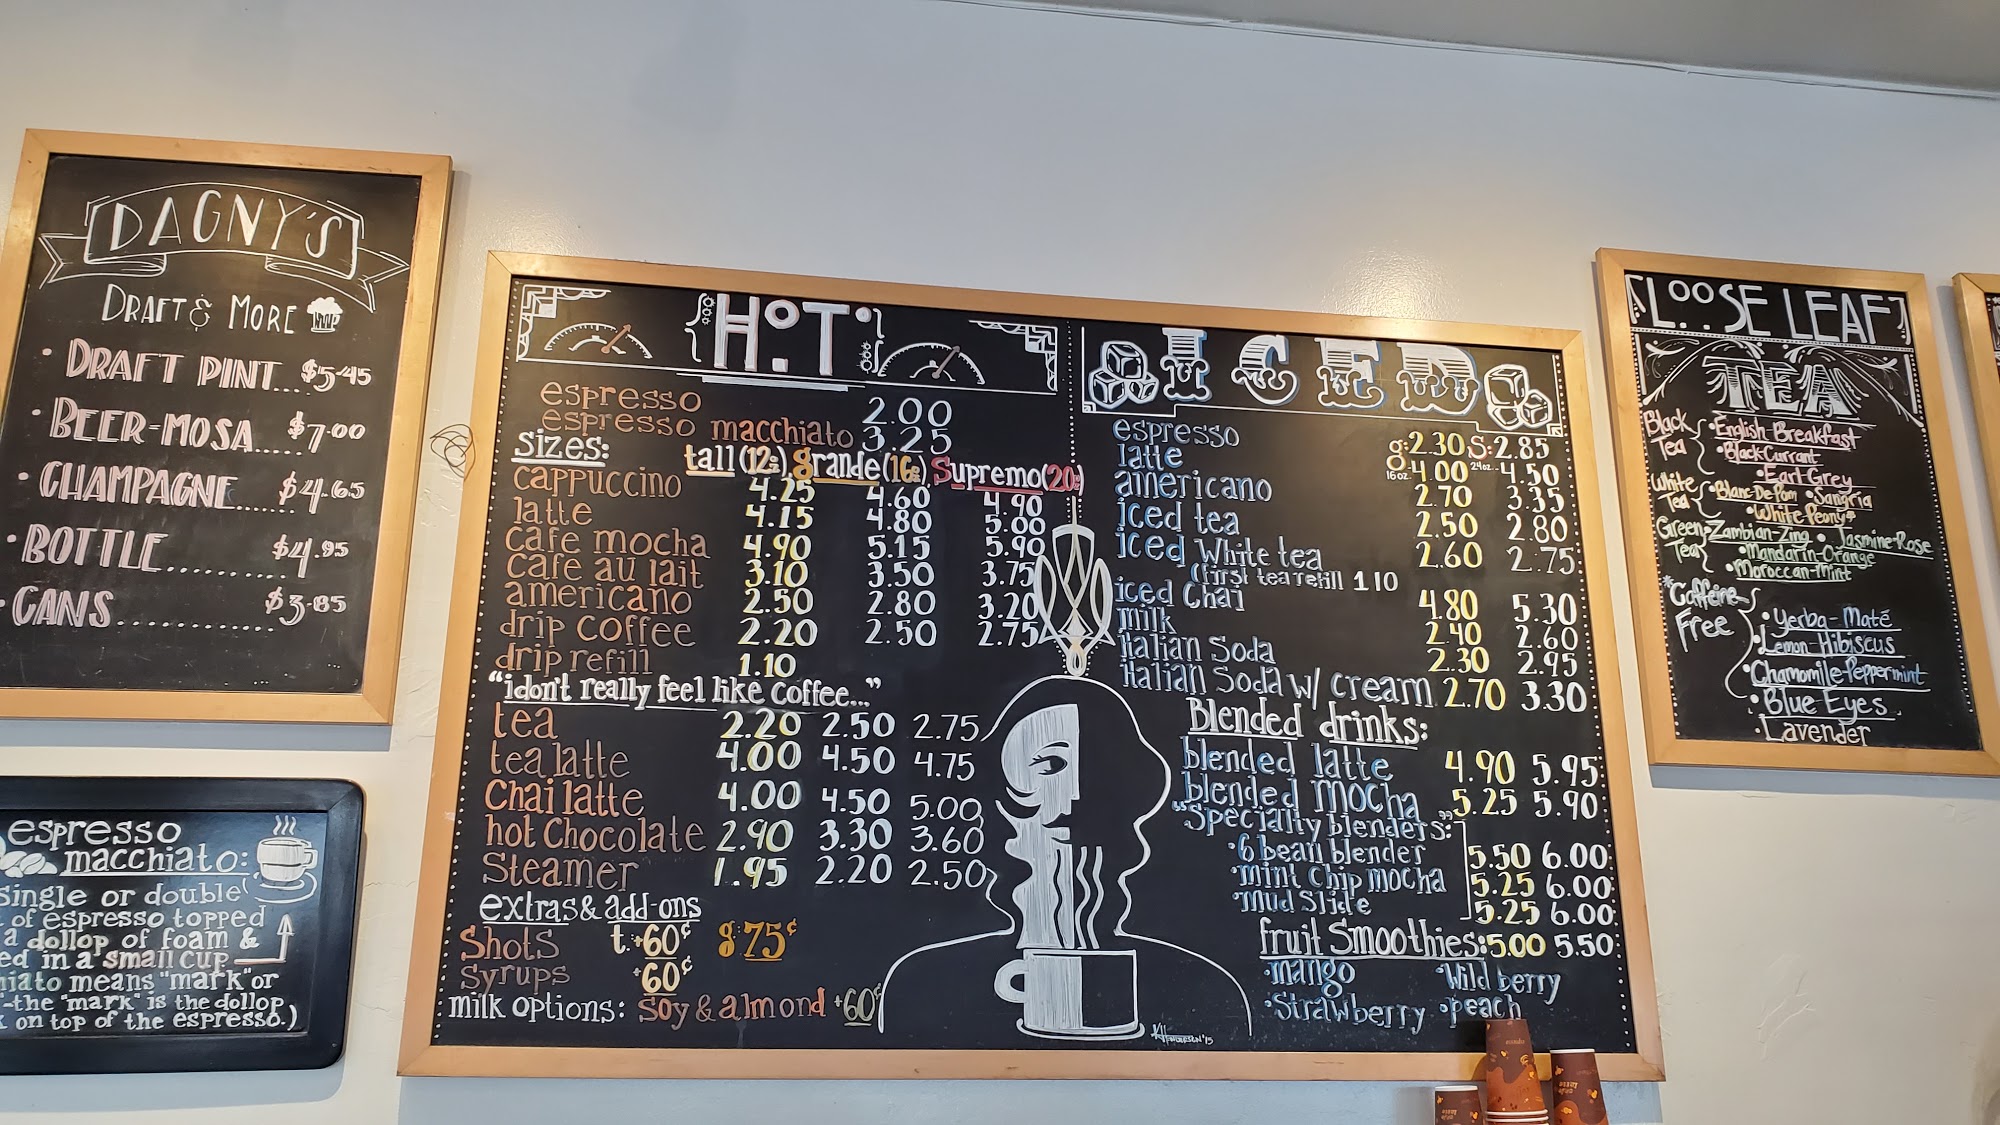 DAGNY'S
DRAFT & MORE
• DRAFT PINT... $5.45
• BEER-MOSA.... $7.00
• CHAMPAGNE....... $4.65
• BOTTLE........... $4.95
• CANS............. $3.85
espresso
macchiato:
single or double
of espresso topped
a dollop of foam &
ed in a small cup
hiato means "mark" or
-the "mark" is the dollop
on top of the espresso.)
HOT
espresso 2.00
espresso macchiato 3.25
sizes: tall (12oz) grande (16oz) Supremo (20oz)
cappuccino 4.25 4.60 4.90
latte 4.15 4.80 5.00
cafe mocha 4.90 5.15 5.90
cafe au lait 3.10 3.50 3.75
americano 2.50 2.80 3.20
drip coffee 2.20 2.50 2.75
drip refill 1.10
"i don't really feel like coffee..."
tea 2.20 2.50 2.75
tea latte 4.00 4.50 4.75
Chai latte 4.00 4.50 5.00
hot Chocolate 2.90 3.30 3.60
Steamer 1.95 2.20 2.50
extras & add-ons
Shots t:+60¢ g:75¢
syrups +60¢
milk options: soy & almond +60¢
ICED
espresso g:2.30 S:2.85
latte 16oz. 4.00 24oz. 4.50
americano 2.70 3.35
iced tea 2.50 2.80
iced White tea 2.60 2.75
(first tea refill 1 10
iced Chai 4.80 5.30
milk 2.40 2.60
italian Soda 2.30 2.95
italian Soda w/ cream 2.70 3.30
Blended drinks:
blended latte 4.90 5.95
blended mocha 5.25 5.90
"Specialty blenders":
• 6 bean blender 5.50 6.00
• mint chip mocha 5.25 6.00
• mud Slide 5.25 6.00
fruit Smoothies: 5.00 5.50
• mango • Wild berry
• Strawberry • peach
'15
LOOSE LEAF
TEA
Black Tea
• English Breakfast
• Black Currant
• Earl Grey
White Tea
• Blanc-De-Pom • Sangria
• White Peony
Green Tea
• Zambian-Zing • Jasmine-Rose
• Mandarin-Orange
• Moroccan-Mint
*Caffeine Free
• Yerba-Maté
• Lemon Hibiscus
• Chamomile-Peppermint
• Blue Eyes
• Lavender